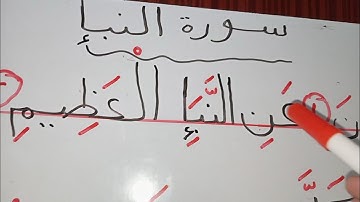 سورة النبأ
ن ١ عَنِ النَّبَإِ الْعَظِيمِ